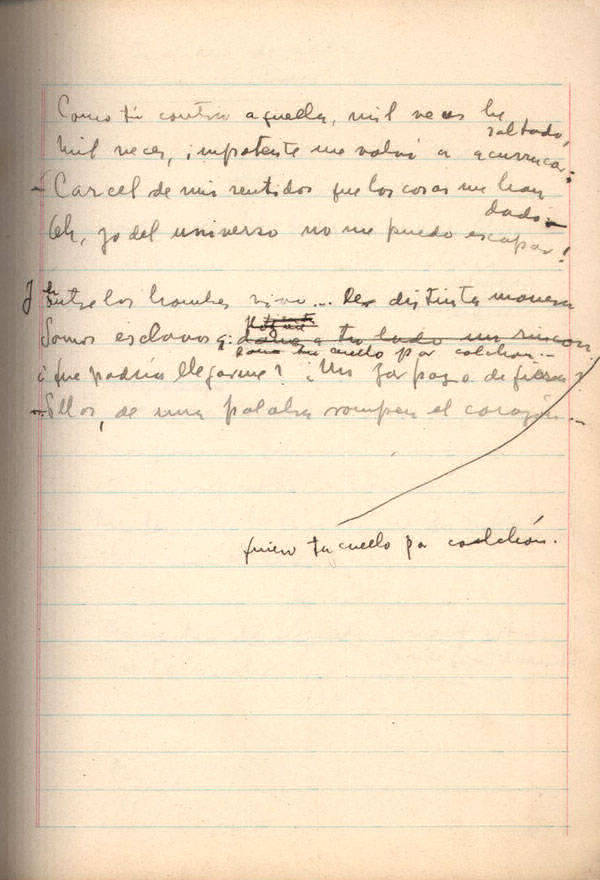 Como tú contra aquella, mil veces he
saltado,
Mil veces, impotente me volví a acurrucar;
– Carcel de mis sentidos que las cosas me han
dado. –
Oh, yo del universo no me puedo escapar!
Y entre los hombres vivo... De distinta manera
Somos esclavos; dame a tu lado un rincon.
Dame tu cuello por colchón. –
¿Que podría llegarme? ¿Un zarpazo de fiera?
– Ellos, de una palabra rompen el corazón. –
quiero tu cuello por colchón.